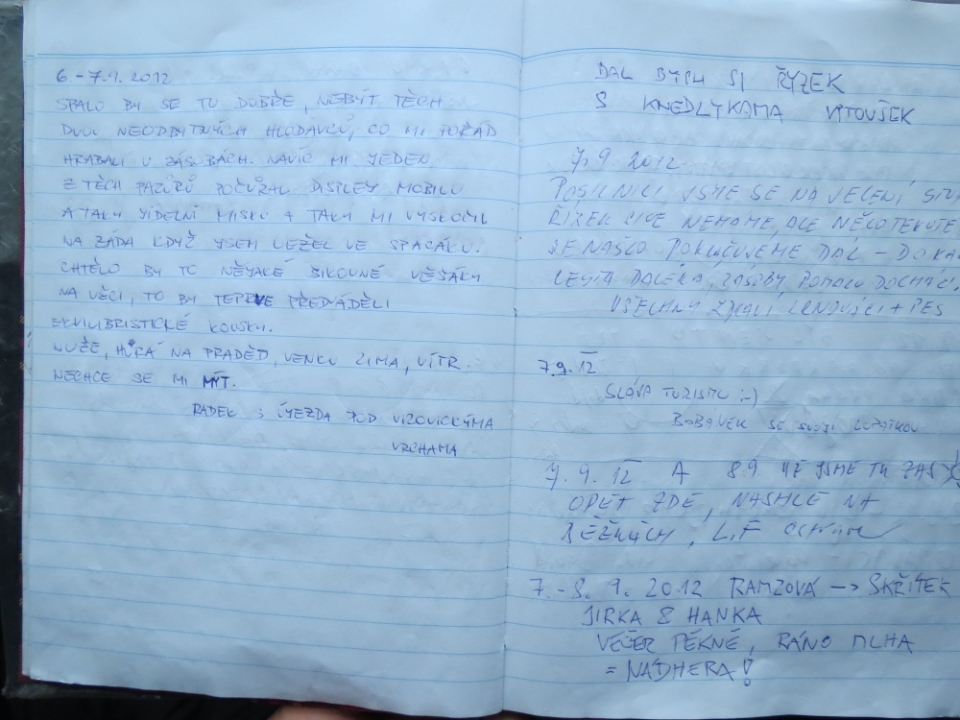 6.-7.9.2012
SPALO BY SE TU DOBŘE, NEBÝT TĚCH
DVOU NEODBYTNÝCH HLODAVCŮ, CO MI POŘÁD
HRABALI V ZÁSOBÁCH. NAVÍC MI JEDEN
Z TĚCH PAZÝRŮ POČŮRAL DISPLEY MOBILU
A TAKY JÍDELNÍ MISKU A TAKY MI VYSKOČIL
NA ZÁDA KDYŽ JSEM LEŽEL VE SPACÁKU.
CHTĚLO BY TO NĚJAKÉ ŠIKOVNÉ VĚŠÁKY
NA VĚCI, TO BY TEPRVE PŘEDVÁDĚLI
EKVILIBRISTICKÉ KOUSKY.
NUŽE, HURÁ NA PRADĚD, VENKU ZIMA, VÍTR.
NECHCE SE MI MÝT.
RADEK Z ÚJEZDA POD VIZOVICKÝMA
VRCHAMA
DAL BYCH SI ŘÝZEK
S KNEDLÝKAMA VITOUŠEK
7.9.2012
POSILNILI JSME SE NA JELENÍ
ŘÍZEK SICE NEMÁME, ALE NĚCO TEKUTÉ
SE NAŠLO. POKRAČUJEME DÁL -
ZÁSOBY POMALU DOCHÁZÍ.
VŠECHNY ZDRAVÍ + PES
7.9.12
SLÁVA TURISTŮ :-)
BOBÁNEK SE SVOJÍ
7.9.12 A 8.9 UŽ JSME TU ZAS
OPĚT ZDE, NASHLE NA
BĚŽKÁCH,
7.-8.9.2012 RAMZOVÁ -> SKŘÍTEK
JIRKA & HANKA
VEČER PĚKNĚ, RÁNO MLHA
= NÁDHERA!